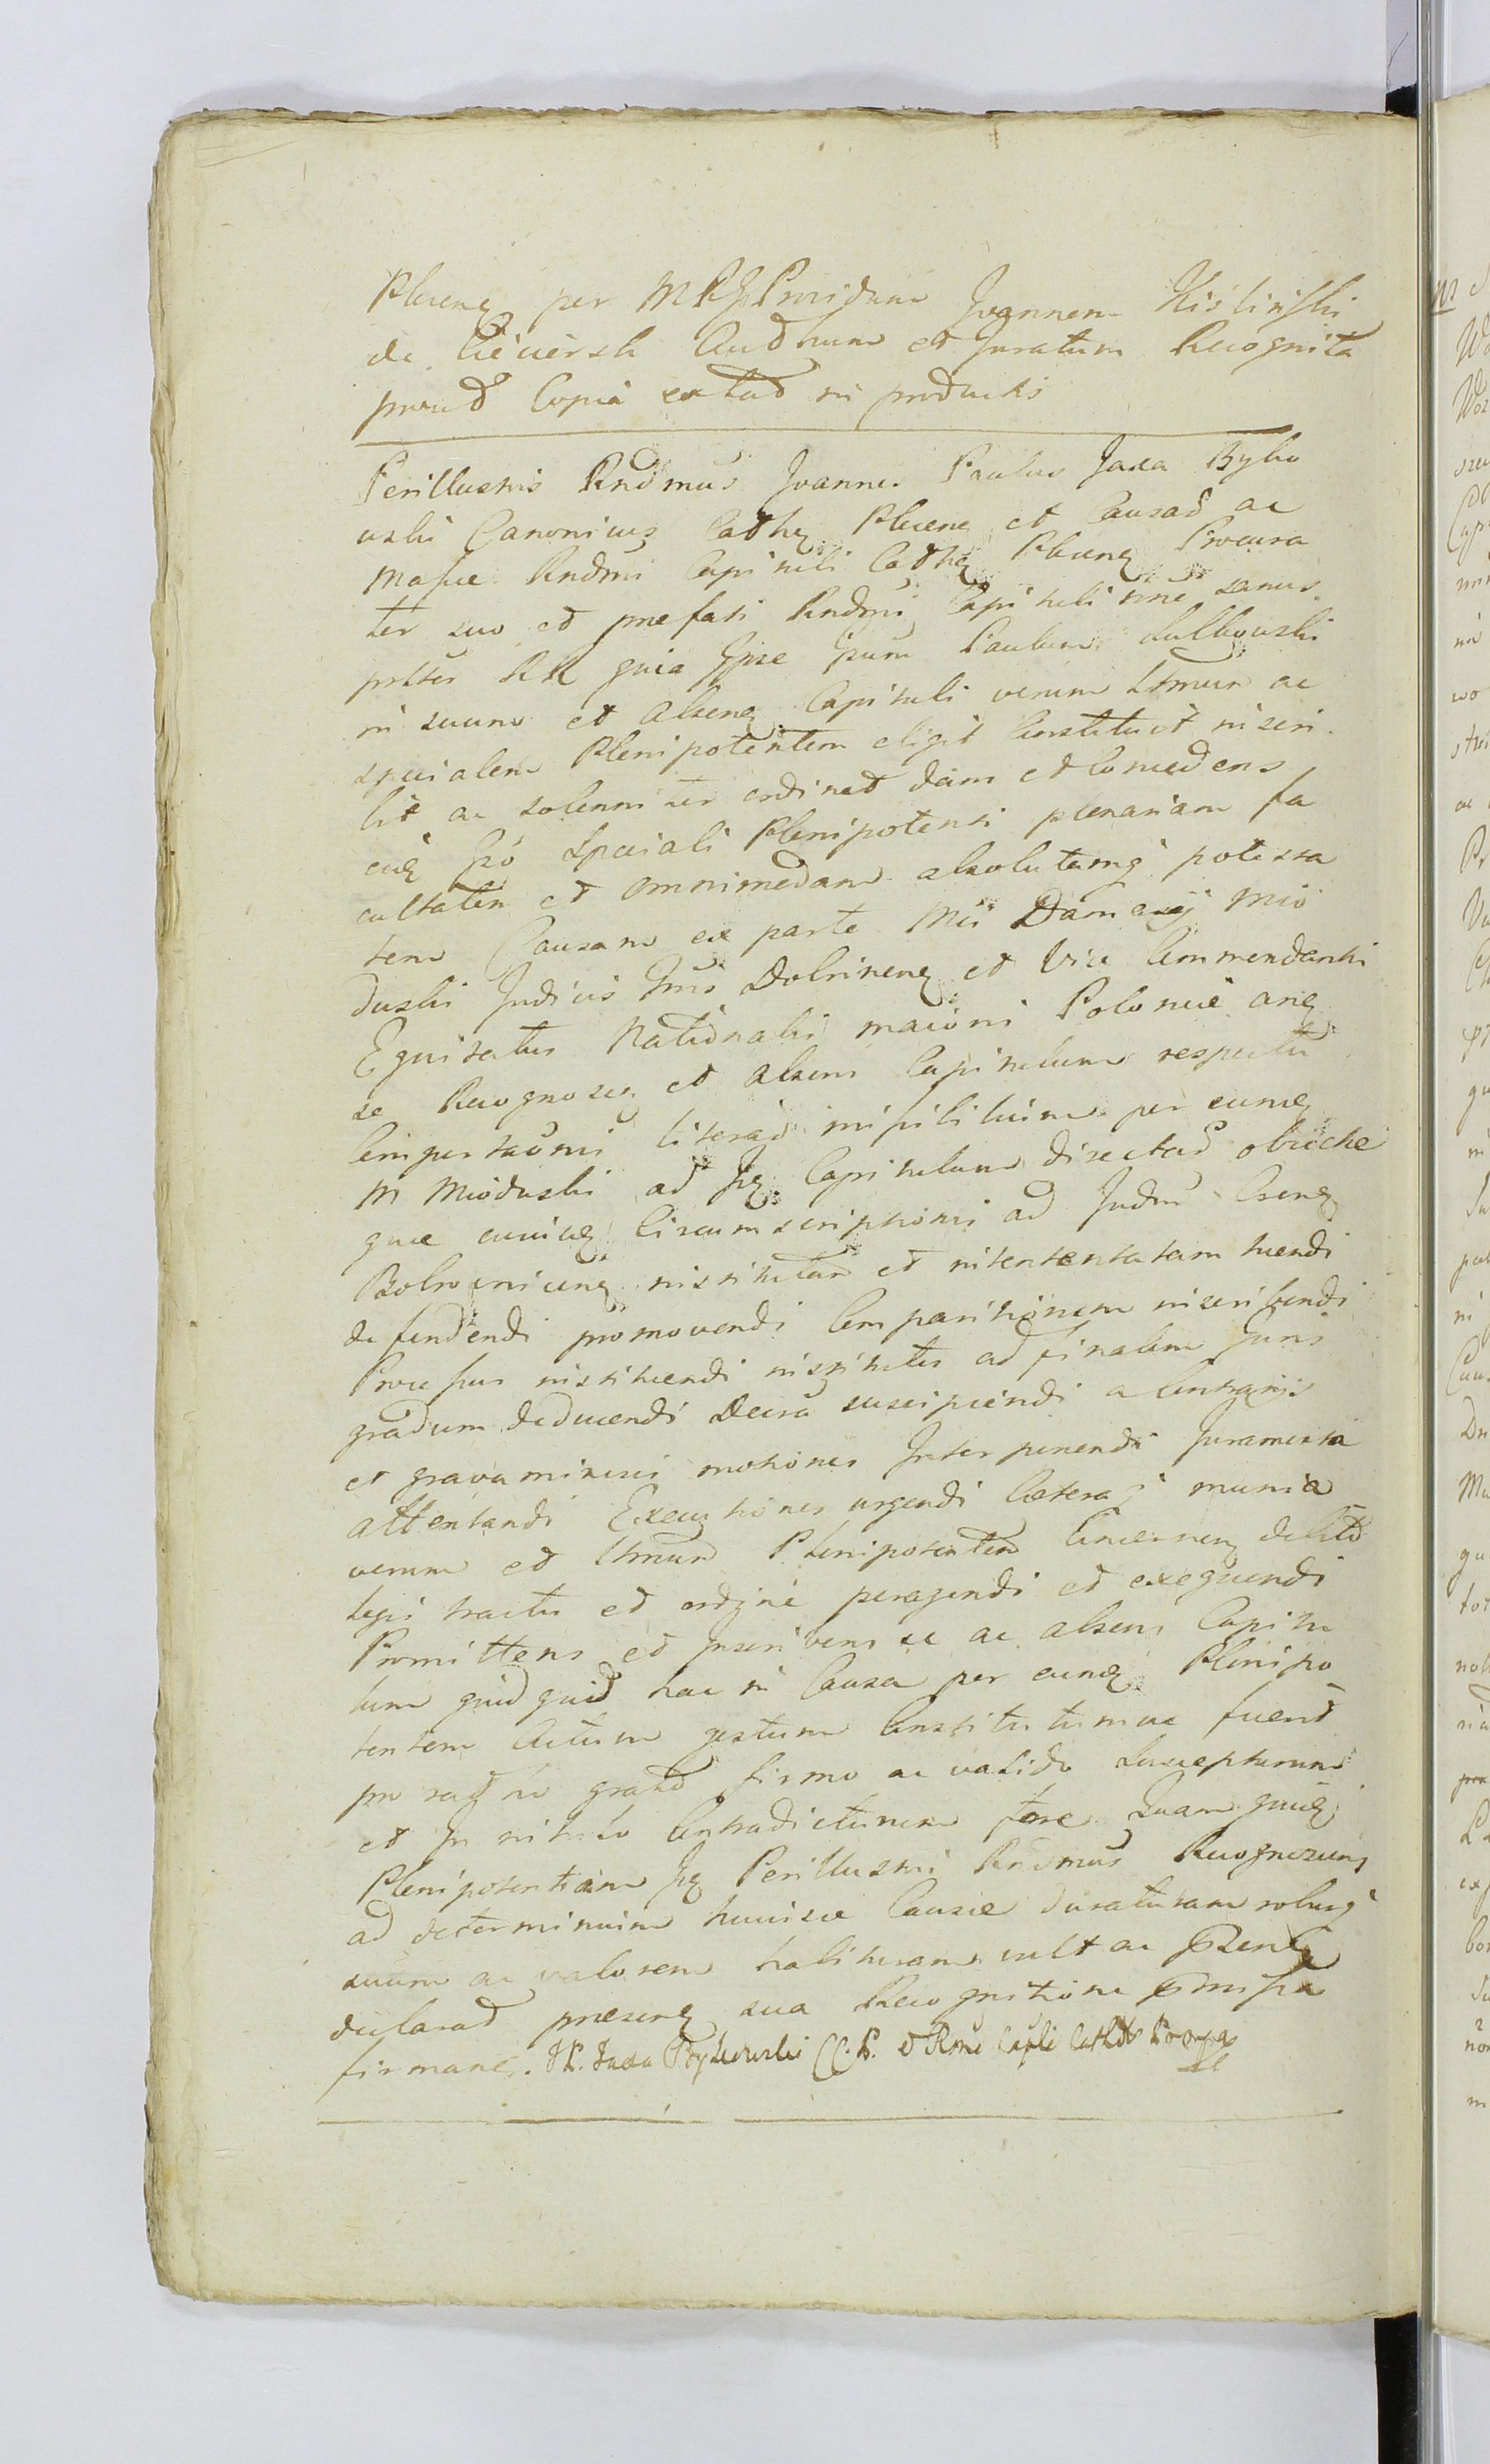 Plocen per MRJ Providum Joannem Kislinski
de Ciecièrsk Audhum et Juratum Recognita
proud Copia extad in productis
Perillustris Rndmus Joannes Paulus Jaxa Byko
wski Canonicus Cathe Plocen et Causad ac
Massae Rndmi Capituli Cathe Plocen Procura
tor suo et praefati Rndmi Capituli nne sanus
RR quia Ipse Paulum Lulkowski
in suum et Absen Capituli verum Ltmum ac
specialem Plenipotentem eligit Constituit inscri
bit ac solenniter ordinat dans et Concedens
eidem Speciali Plenipotenti plenariam fa
cultatem et omnimodam absolutamq potesta
tem Causam ex parte Mci Damazij Mio
duski Judicis Dobrinen et Vice Commendanti
Equitatus Nationalis maioris Polonie
se Recognoscen et absens Capitulum respectu
Comportaōnis literas missilitium per eum
M Mioduski ad Capitulum directas obiecte
que Circumscriptionis ad Judm Csren
Bobrownicen institutam et intentatam tuendi
defendendi promovendi Comparitionem inscribendi
Processus instituendi institutos ad finalem Juris
gradum deducendi Decreta suscipiendi a Contrarijs
et gravaminosis motiones Interponendi Juramenta
attentandi Executiones urgendi Caeteraq munia
verum et Ltmum Plenipotentem Concernen debito
legis tractu et ordine peragendi et exequendi
Promittens et Inscribens se ac absens Capitu
lum quidquid hac in Causa per eum Plenipo
tentem Actum gestum Constitutumve fuerit
pro rato grato firmo ac valido Suscepturum
et In nihilo Contradicturum fore Quam quid
Plenipotentiam Perillustris Rndmus Recognoscens
ad determinium huiusce Causae duraturam roburq
suum ac valorem habituram vult ac
declarad praesen sua Recognitione
firman. JP. Jaxa Bykowski CC.P. Rmi Capli Cathlis